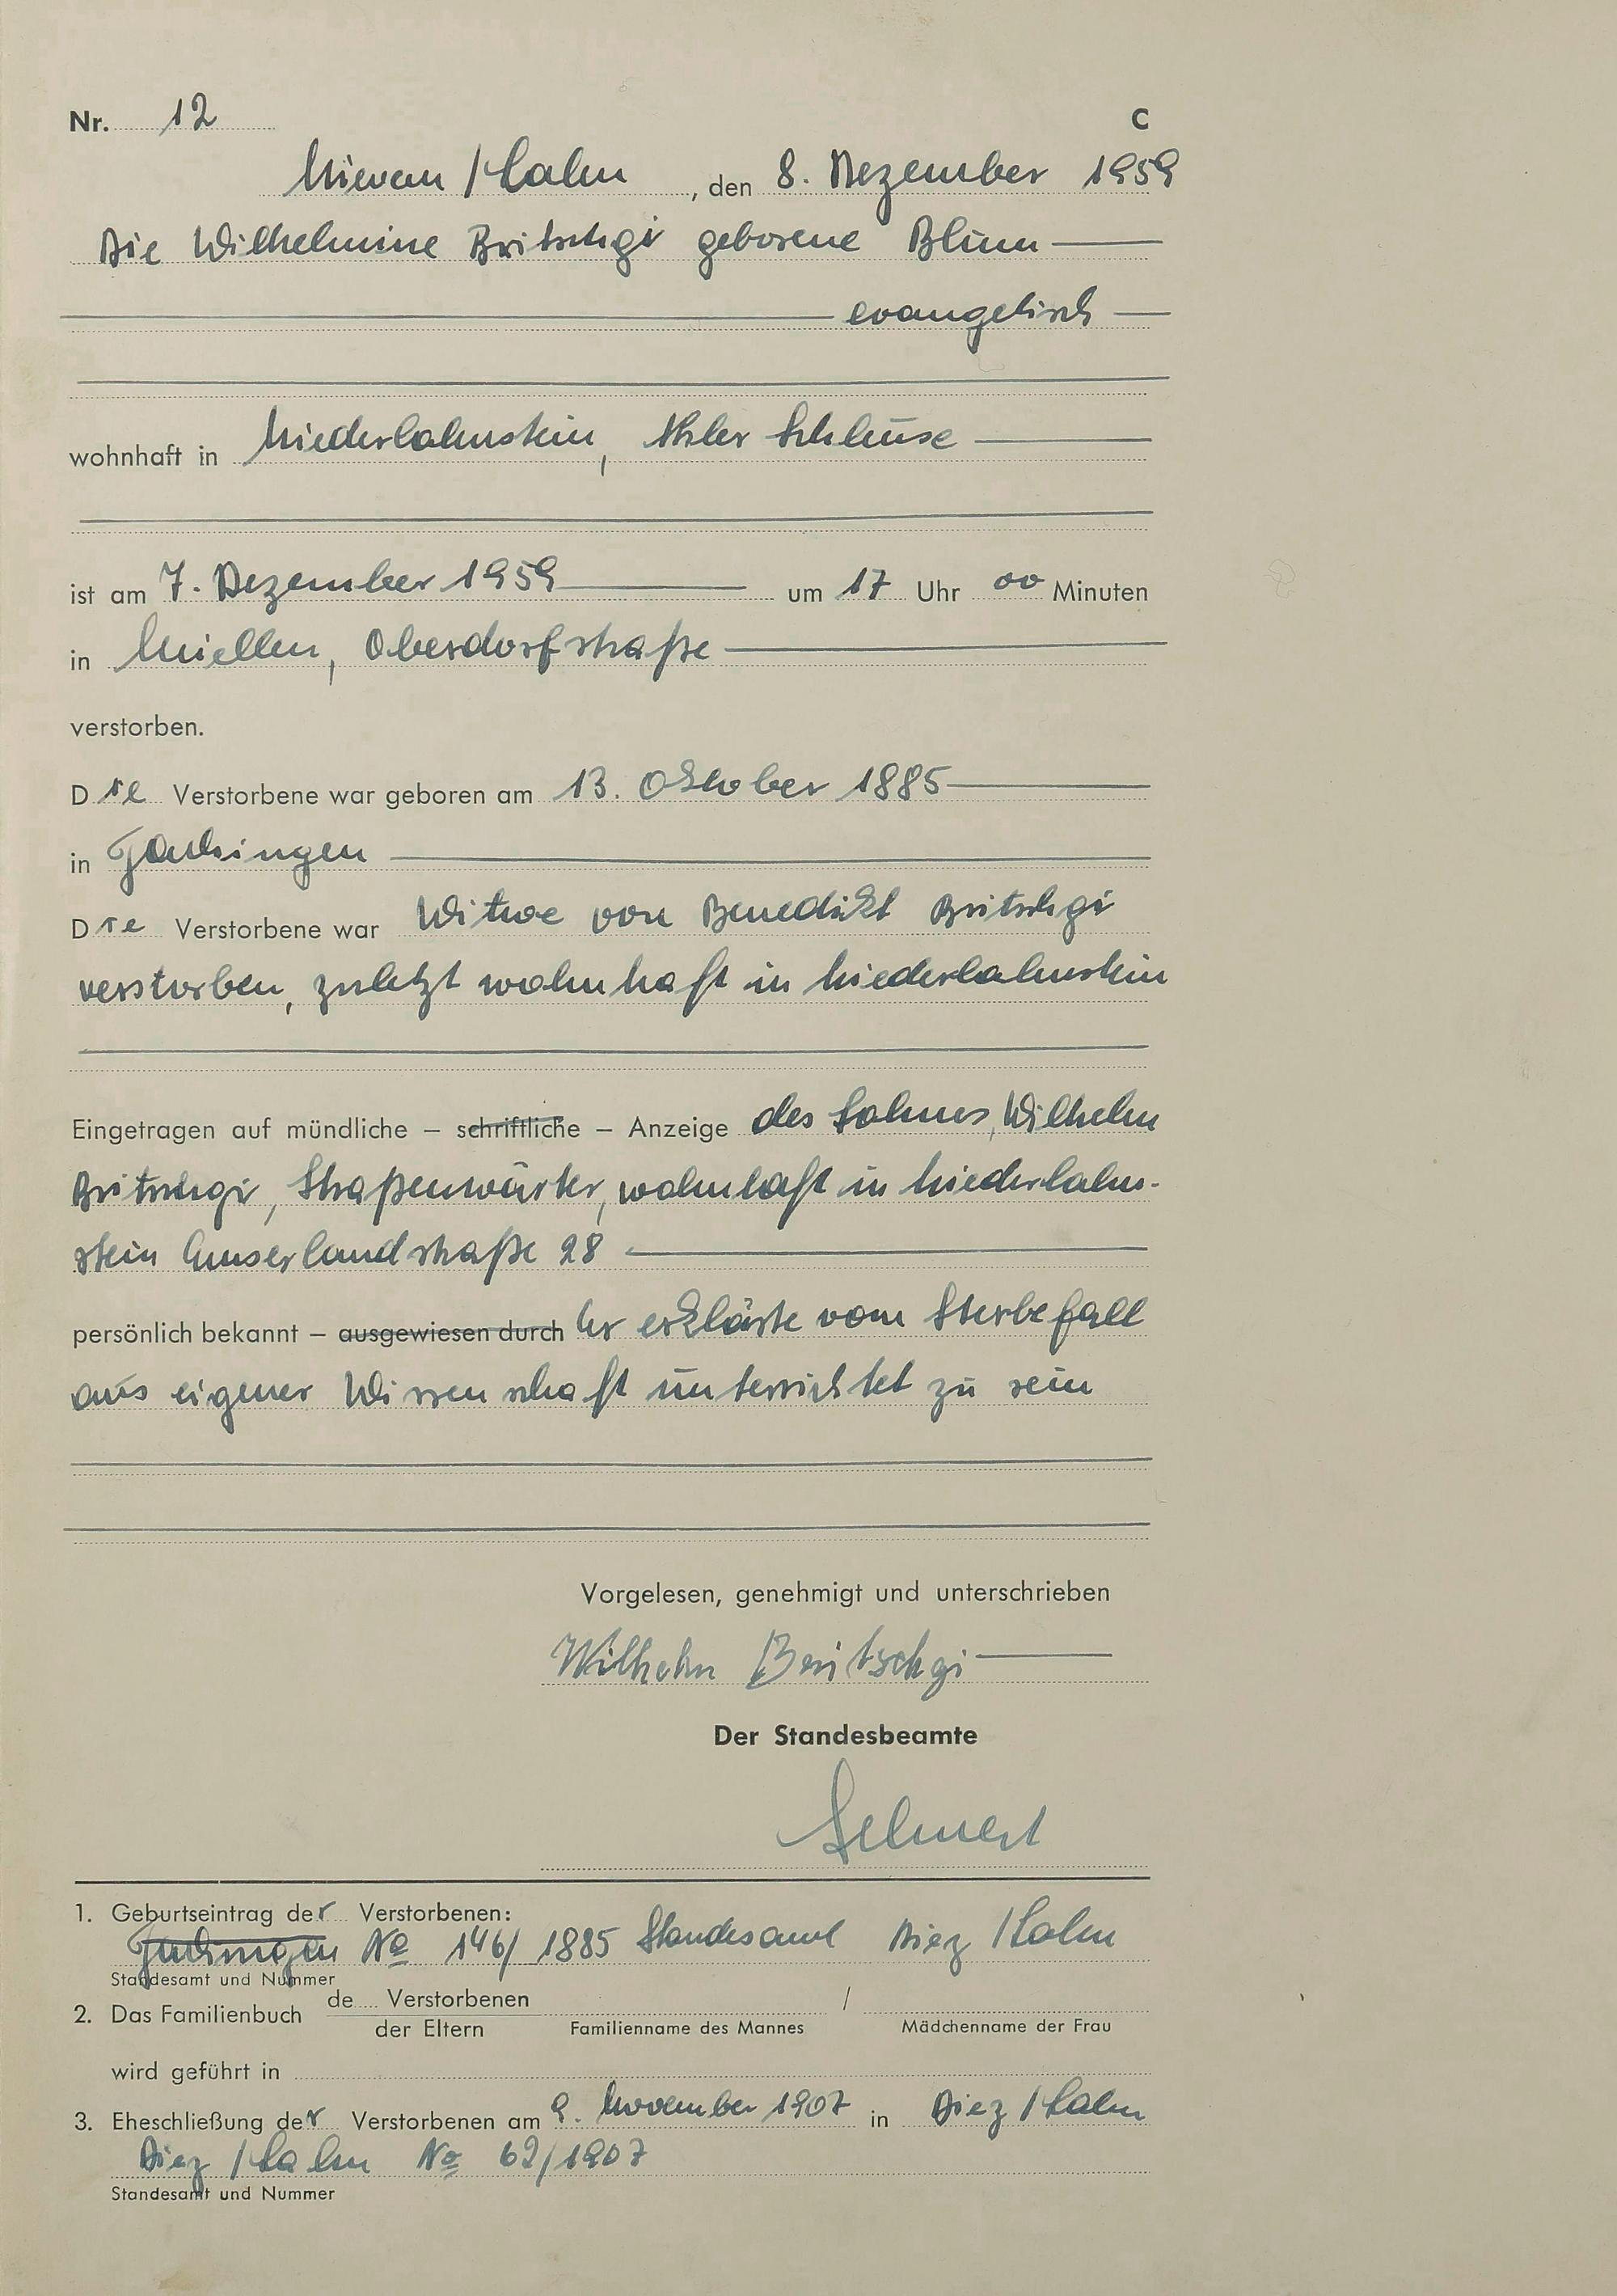 Nr. 12 C
Nievern / Lahn, den 8. Dezember 1959
Die Wilhelmine Britschgi geborene Blum
evangelisch
wohnhaft in Niederlahnstein, Ahler Schleuse
ist am 7. Dezember 1959 um 17 Uhr 00 Minuten
in Miellen, Oberdorfstraße
verstorben.
Die Verstorbene war geboren am 13. Oktober 1885
in Fachingen
Die Verstorbene war Witwe von Benedikt Britschgi
verstorben, zuletzt wohnhaft in Niederlahnstein
Eingetragen auf mündliche – schriftliche – Anzeige des Sohnes, Wilhelm
Britschgi, Straßenwärter, wohnhaft in Niederlahn-
stein Emserlandstraße 28
persönlich bekannt – ausgewiesen durch Er erklärte vom Sterbefall
aus eigener Wissenschaft unterrichtet zu sein
Vorgelesen, genehmigt und unterschrieben
Wilhelm Britschgi
Der Standesbeamte
1. Geburtseintrag der Verstorbenen:
Fachingen No 146/1885 Standesamt Diez / Lahn
Standesamt und Nummer
2. Das Familienbuch de Verstorbenen /
der Eltern Familienname des Mannes Mädchenname der Frau
wird geführt in
3. Eheschließung der Verstorbenen am 9. November 1907 in Diez / Lahn
Diez / Lahn No 62/1907
Standesamt und Nummer